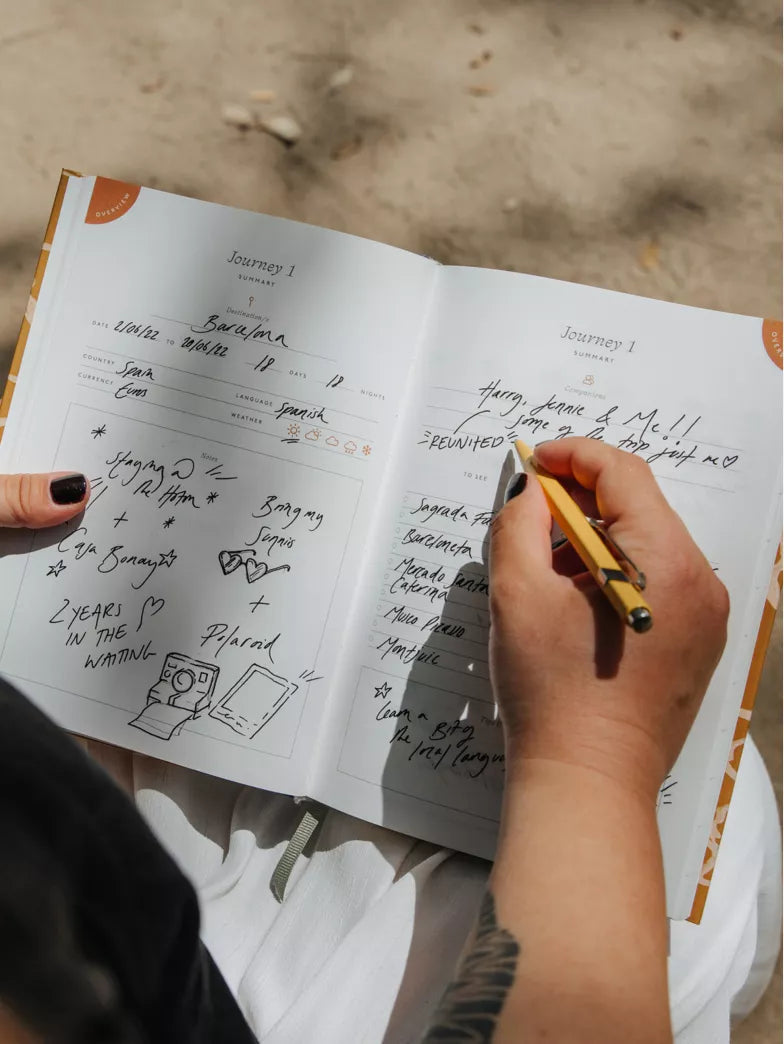 OVERVIEW
Journey 1
SUMMARY
Destination/s
Barcelona
DATE 2/06/22 TO 20/06/22 18 DAYS 18 NIGHTS
COUNTRY Spain LANGUAGE Spanish
CURRENCY Euros WEATHER
Notes
Staying @
the Hoxton
+
Casa Bonay
2 YEARS
IN THE
WAITING
Bring my
Sunnis
+
Polaroid
OVER
Journey 1
SUMMARY
Companions
Harry, Jennie & Me!!
REUNITED some of the trip just me
TO SEE
Sagrada
Barcloneta
Mercado Santa
Caterina
Museo Picasso
Montjuic
Learn a Bit of
the local